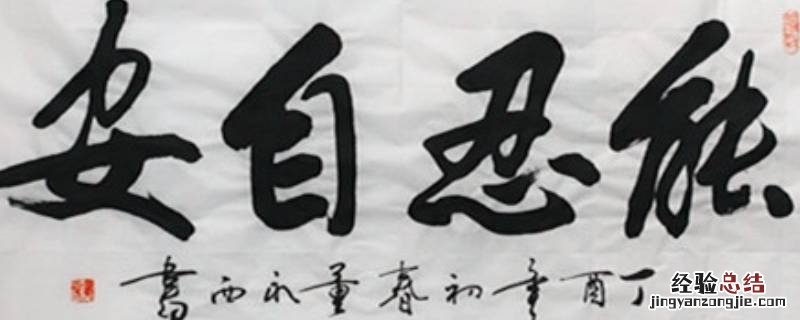 能忍自安
丁酉年初春董永西書
经验总结
jingyanzongjie.com